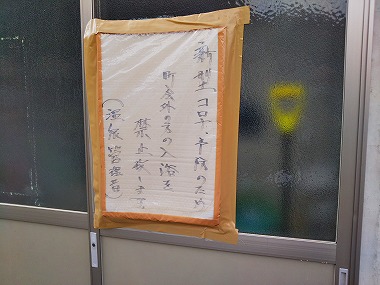 新型コロナ予防のため
町会外の方の入浴を
禁止致します
(温泉管理者)